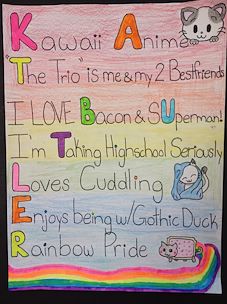 Kawaii Anime
"The Trio" is me & my 2 Bestfriends
I LOVE Bacon & SUperman!
I'm Taking Highschool Seriously
Loves Cuddling
Enjoys being w/Gothic Duck
Rainbow Pride